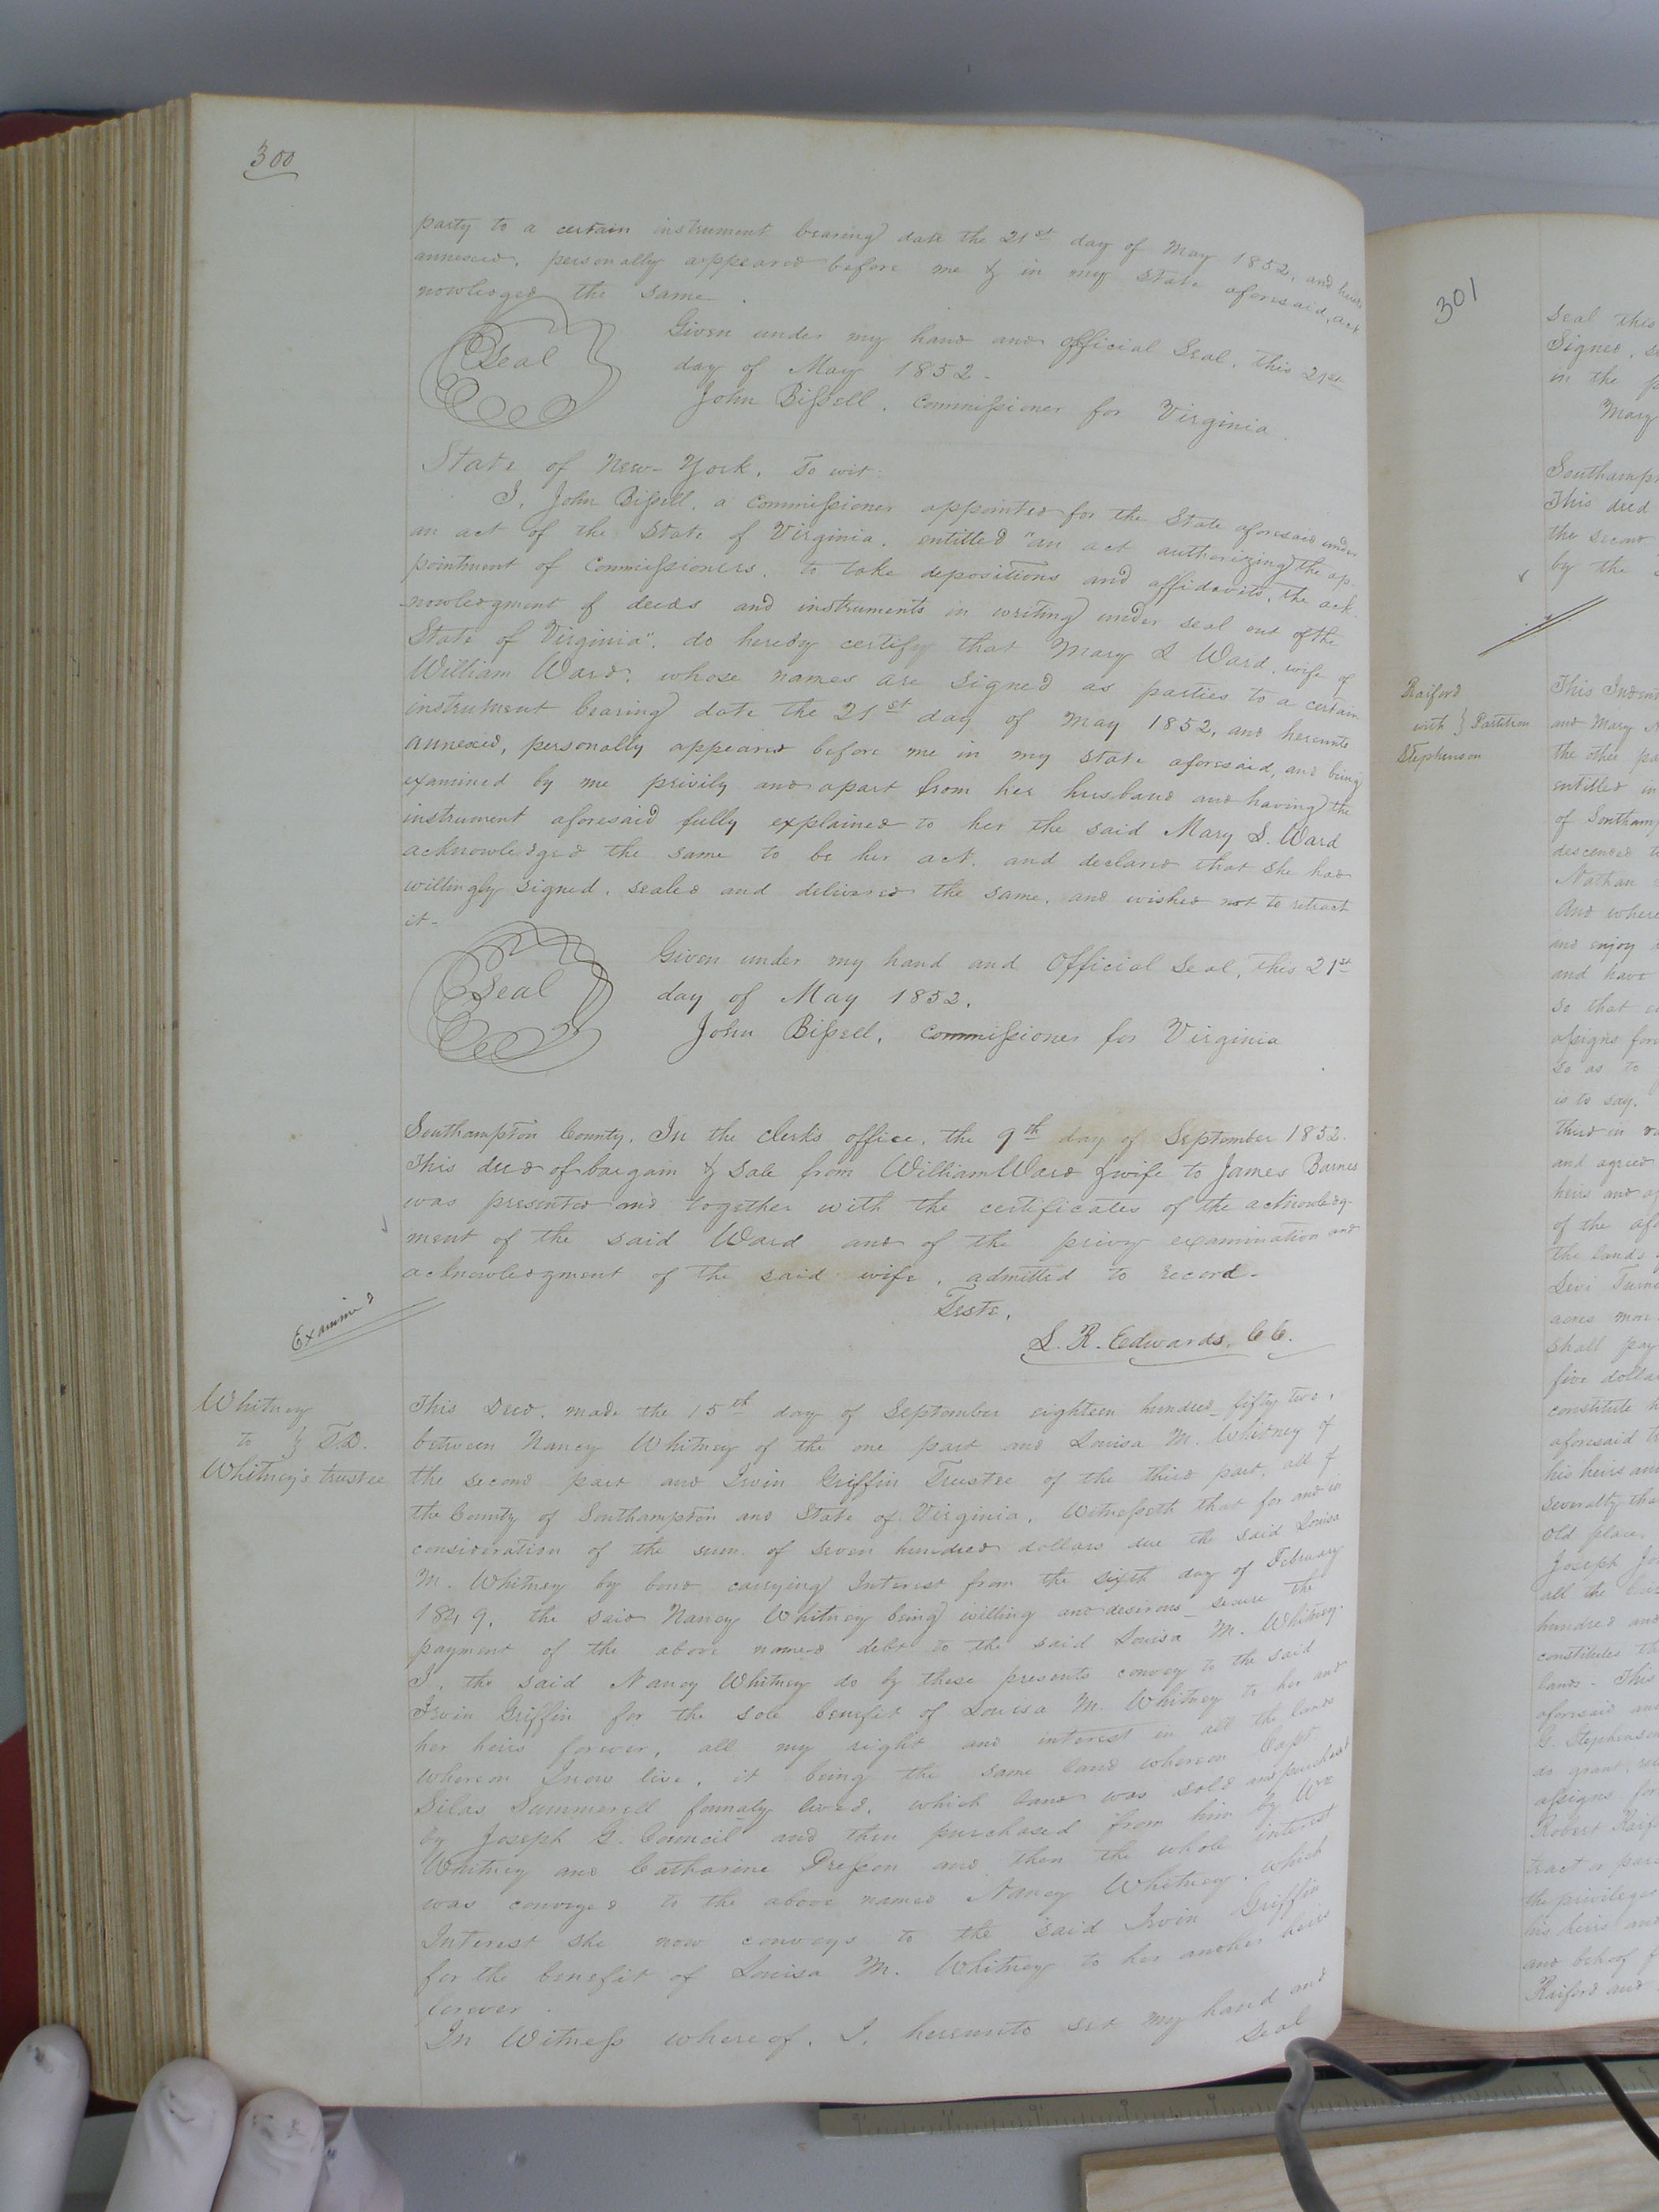 300
party to a certain instrument bearing date the 21st day of May 1852, and here
annexed, personally appeared before me & in my State aforesaid, ack
nowledged the same.
Seal
Given under my hand and official Seal, this 21st
day of May 1852.
John Bissell, Commissioner for Virginia.
State of New-York, To wit:
I, John Bissell, a Commissioner appointed for the State aforesaid under
an act of the State of Virginia, entitled "an act authorizing the ap-
pointment of Commissioners, to take depositions and affidavits, the ack
nowledgment of deeds and instruments in writing under seal out of the
State of Virginia", do hereby certify that Mary S Ward, wife of
William Ward, whose names are signed as parties to a certain
instrument bearing date the 21st day of May 1852, and hereunto
annexed, personally appeared before me in my State aforesaid, and being
examined by me privily and apart from her husband and having the
instrument aforesaid fully explained to her the said Mary S. Ward
acknowledged the same to be her act, and declared that she had
willingly signed, sealed and delivered the same, and wished not to retract
it-
Seal
Given under my hand and Official Seal, this 21st
day of May 1852.
John Bissell, Commissioner for Virginia
Southampton County, In the Clerk's office, the 9th day of September 1852.
This deed of bargain & sale from William Ward & wife to James Barnes
was presented and together with the certificates of the acknowledg-
ment of the said Ward and of the privy examination and
acknowledgment of the said wife, admitted to record-
Teste,
L. R. Edwards, C.C.
Examined
Whitney
to } T.D.
Whitney's trustee
This Deed, made the 15th day of September eighteen hundred fifty two,
between Nancy Whitney of the one part and Louisa M. Whitney of
the second part and Irvin Griffin Trustee of the third part, all of
the County of Southampton and State of Virginia, Witnesseth that for and in
consideration of the sum of seven hundred dollars due the said Louisa
M. Whitney by bond carrying Interest from the sixth day of February
1849, the said Nancy Whitney being willing and desirous secure the
payment of the above named debt to the said Louisa M. Whitney.
I, the said Nancy Whitney do by these presents convey to the said
Irvin Griffin for the sole benefit of Louisa M. Whitney to her and
her heirs forever, all my right and interest in all the lands
whereon I now live, it being the same land whereon Capt.
Silas Summerell formaly lived, which land was sold and purchased
by Joseph G. Council and then purchased from him by Wm
Whitney and Catharine Presson and then the whole interest
was conveyed to the above named Nancy Whitney, which
Interest she now conveys to the said Irvin Griffin
for the benefit of Louisa M. Whitney to her and her heirs
forever.
In Witness whereof, I, hereunto set my hand and
seal
301
Seal this
Signed, s
in the p
Mary
Southamp
This deed
the second
by the
Raiford
with } Partition
Stephenson
This Indent
and Mary
the other pa
entitled in
of Southamp
descended t
Nathan
And where
and enjoy
and have
so that
assigns for
so as to
is to say,
third in
and agreed
heirs and as
of the afo
the lands
Levi Turne
acres more
shall pay
five dolla
constitute h
aforesaid t
his heirs and
severalty tha
old place,
Joseph Jo
all the
hundred and
constitutes th
lands - This
aforesaid and
G. Stephenson
do grant,
assigns for
Robert Raifo
tract or parc
the privileges
his heirs and
and behoof f
Raiford and